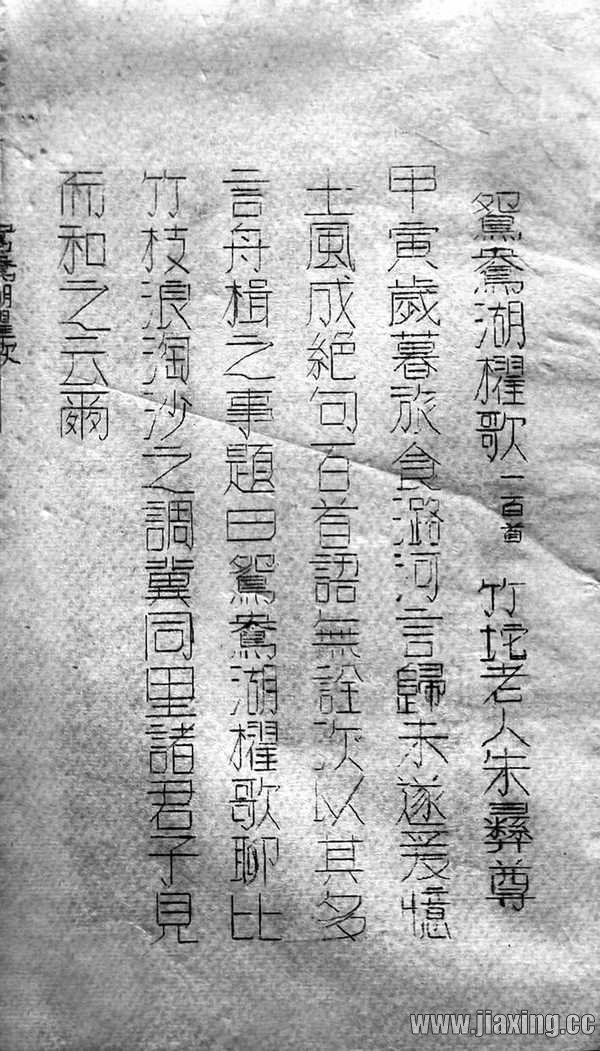 鴛鴦湖櫂歌一百首 竹垞老人朱彞尊
甲寅歲暮旅食潞河言歸未遂爰憶
土風成絕句百首語無詮次以其多
言舟楫之事題曰鴛鴦湖櫂歌聊比
竹枝浪淘沙之調冀同里諸君子見
而和之云爾
鴛鴦湖櫂歌
www.jiaxing.cc